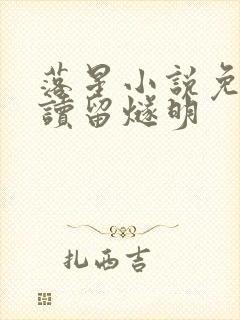 落星小説免
讀留燧明
扎西吉